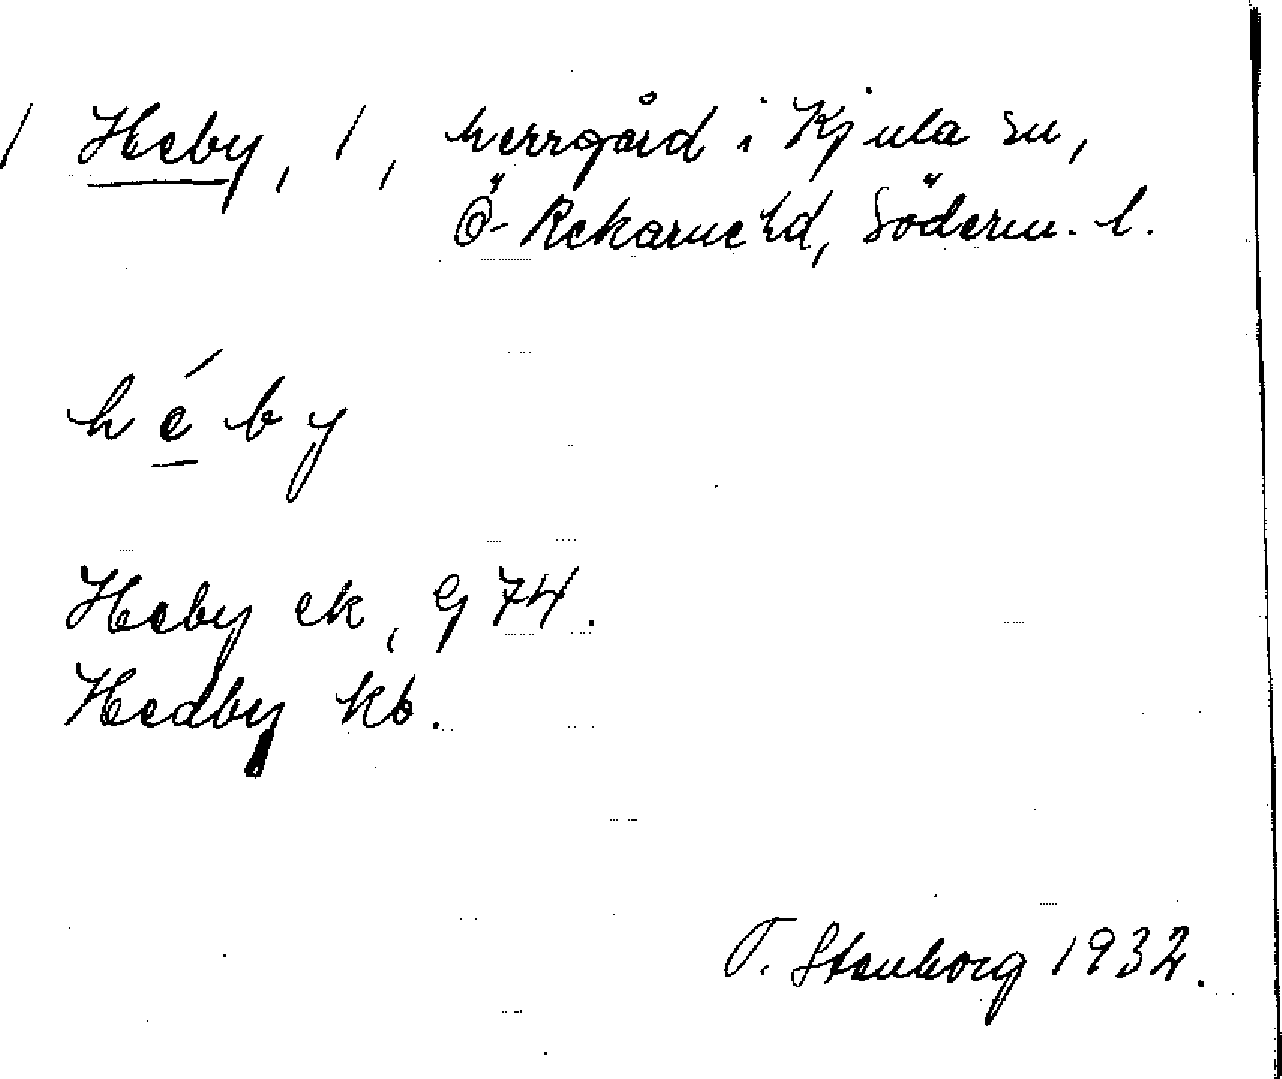 / Heby, 1, herrgård i Kjula sn,
Ö-Rekarne hd, Söderm. l.
héby
Heby ek, G 74.
Hedby kb.
T. Stenborg 1932.